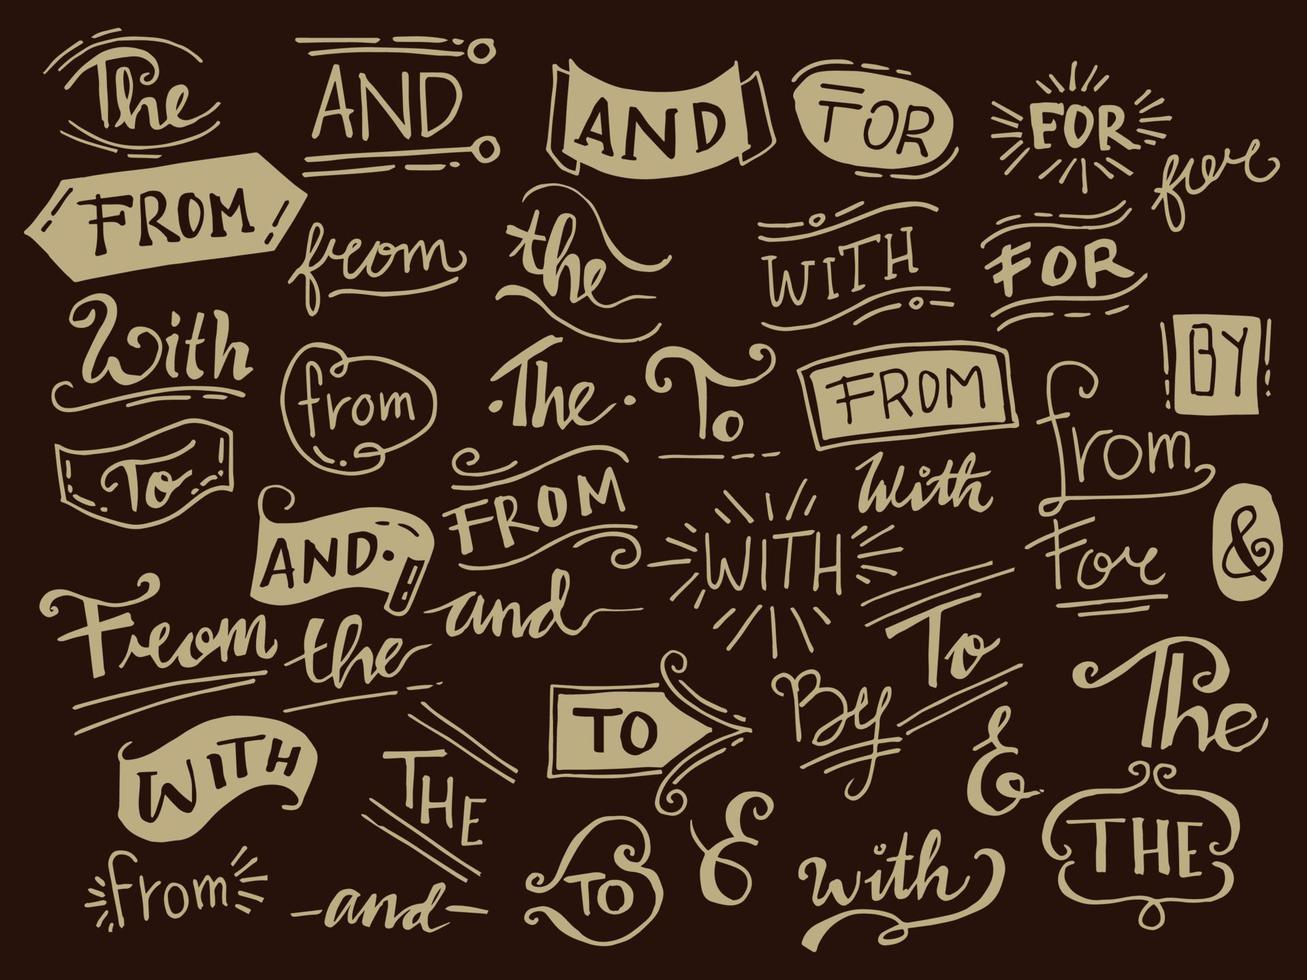 The AND AND FOR FOR
for
FROM from the WITH FOR
With from The To FROM BY
To FROM With from
AND WITH For &
From the and To
By The
WITH THE TO &
From and TO & with THE